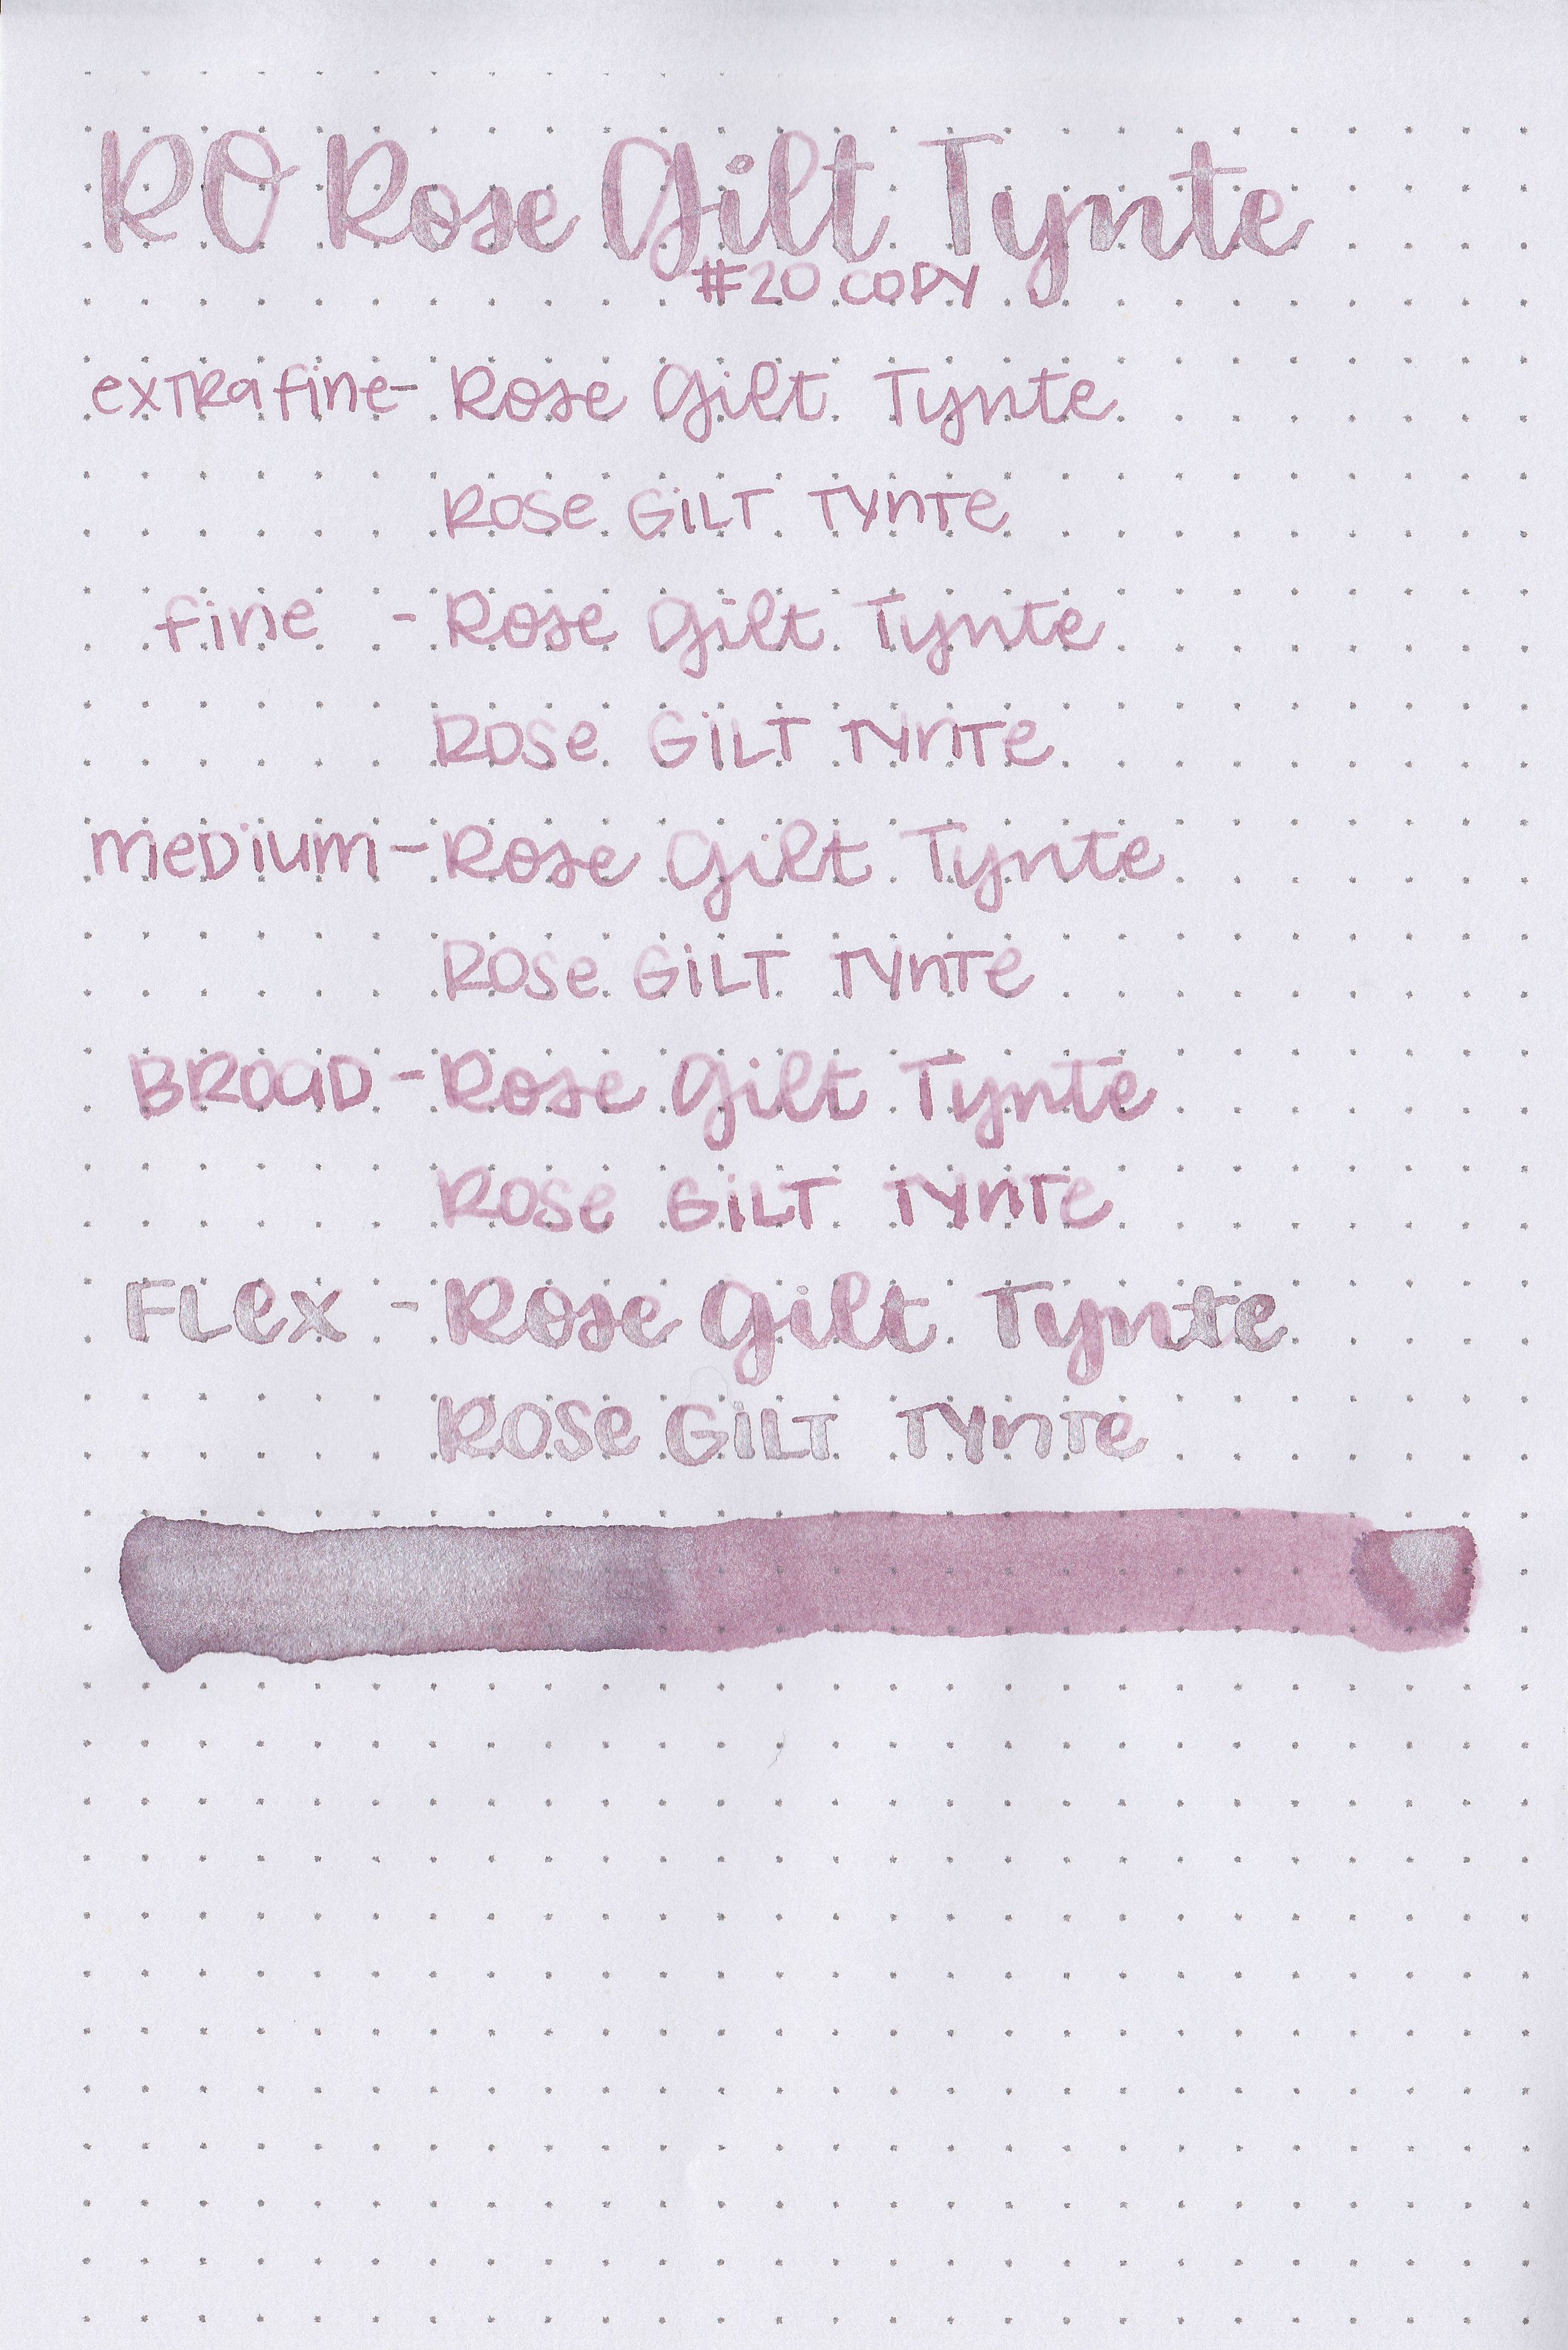 RO Rose Gilt Tynte
#20 COPY
extra fine - Rose Gilt Tynte
ROSe GiLT TYnTe
fine - Rose Gilt Tynte
ROSe GiLT TYnTe
meDium - Rose Gilt Tynte
ROSe GiLT TYnTe
BROaD - Rose Gilt Tynte
ROSe GiLT TYnTe
FLex - Rose Gilt Tynte
ROSe GiLT TYnTe